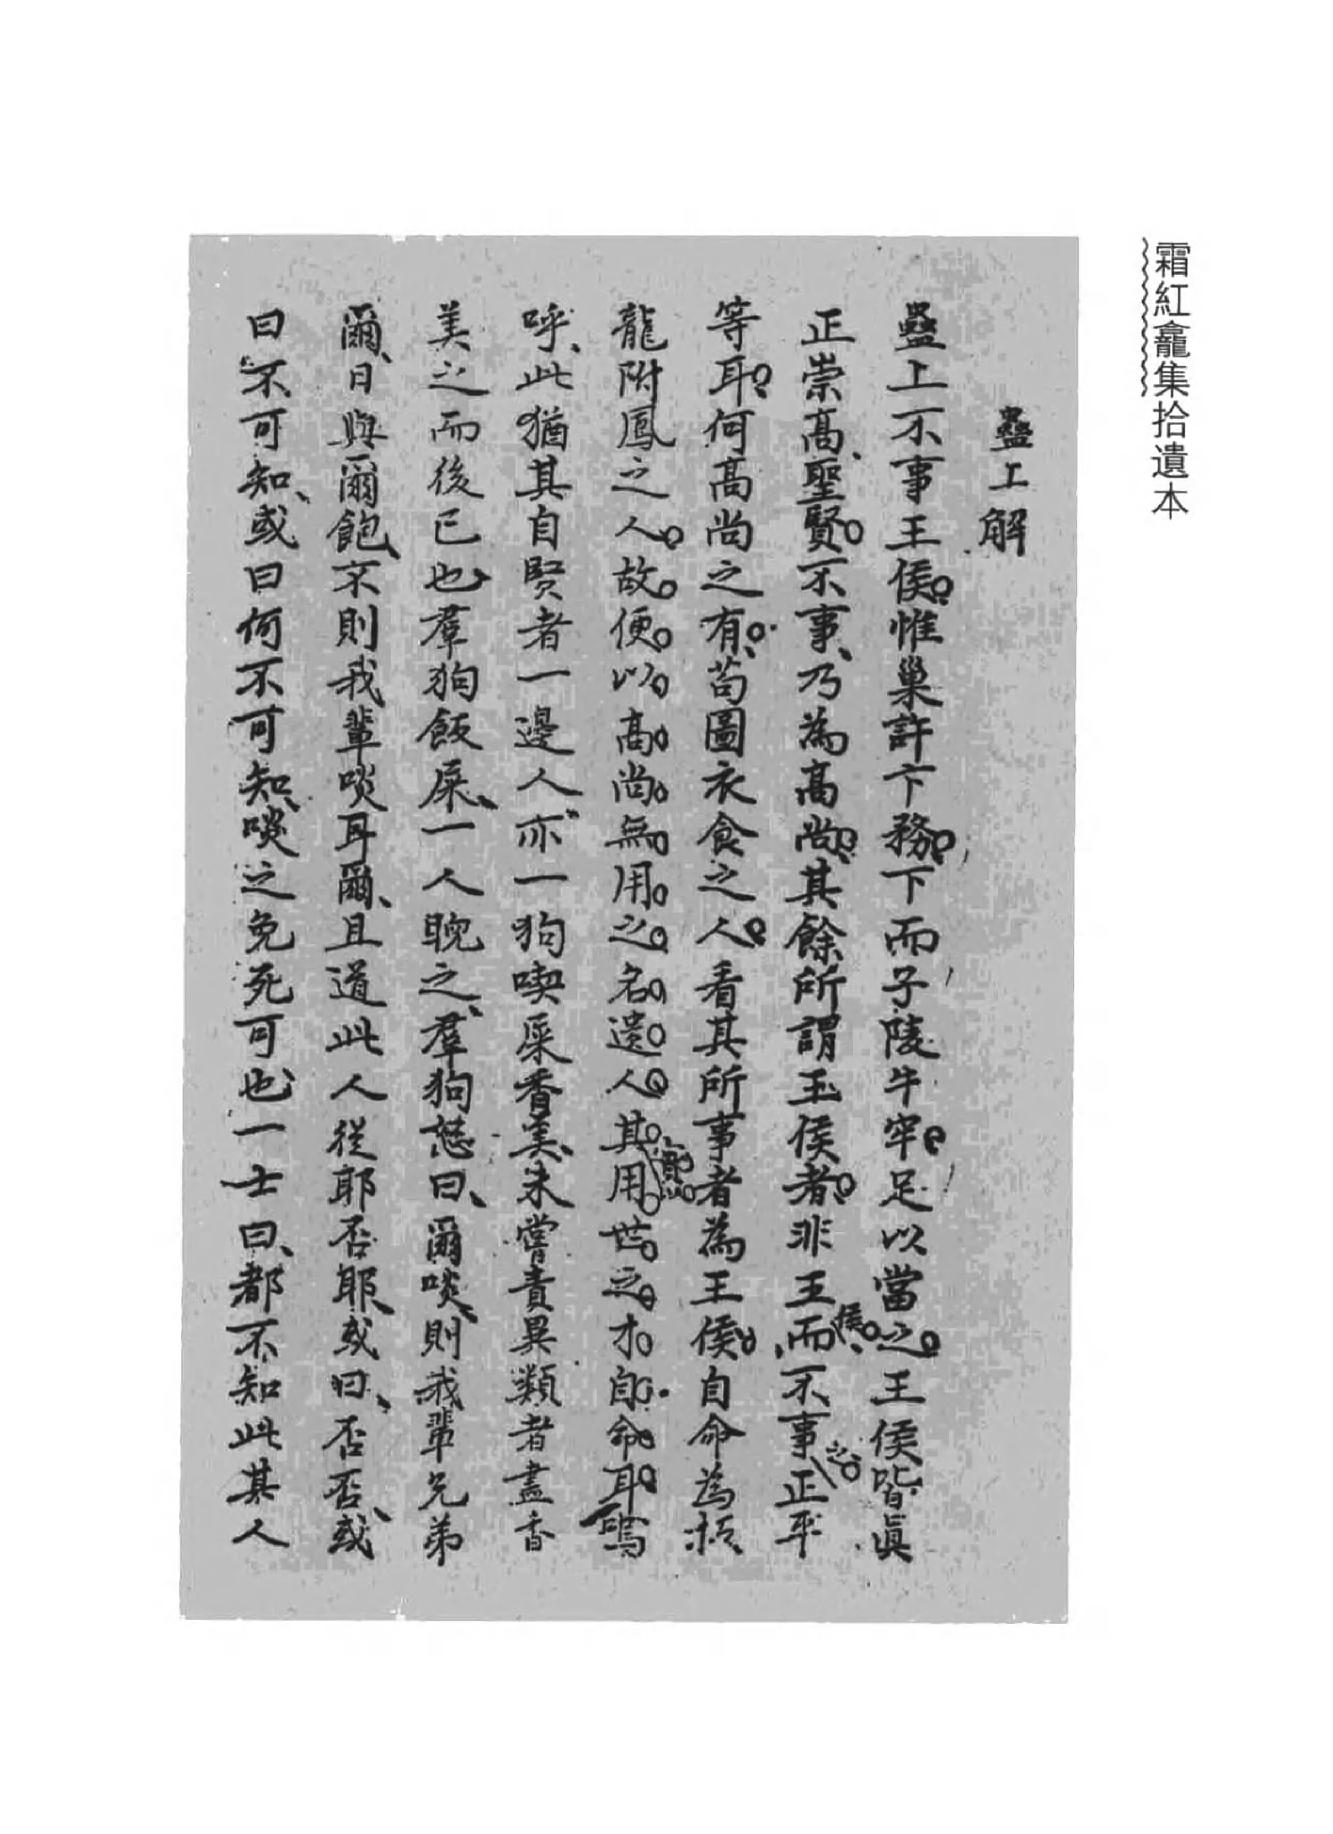 霜紅龕集拾遺本
蠱上解
蠱上不事王侯惟巢許卞務下而子陵牛牢足以當之王侯皆真
正崇高聖賢不事乃為高尚其餘所謂王侯者非王侯而不事之正平
等耳何高尚之有苟圖衣食之人看其所事者為王侯自命為扳
龍附鳳之人故便以高尚無用之名遺人其用世之才自命耳嗚
呼此猶其自賢者一邊人亦一狗喫屎香美未嘗責異類者盡香
美之而後已也羣狗飯屎一人睨之羣狗怒曰爾啖則我輩兄弟
爾日與爾飽不則我輩啖耳爾且道此人從耶否耶或曰否否或
曰不可知或曰何不可知啖之免死可也一士曰都不知此其人